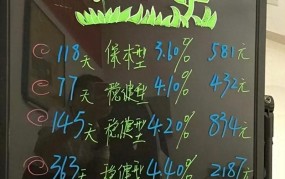 118天 保本型 3.60% 581元
77天 稳健型 4.10% 432元
145天 稳健型 4.20% 834元
363天 稳健型 4.40% 2187元